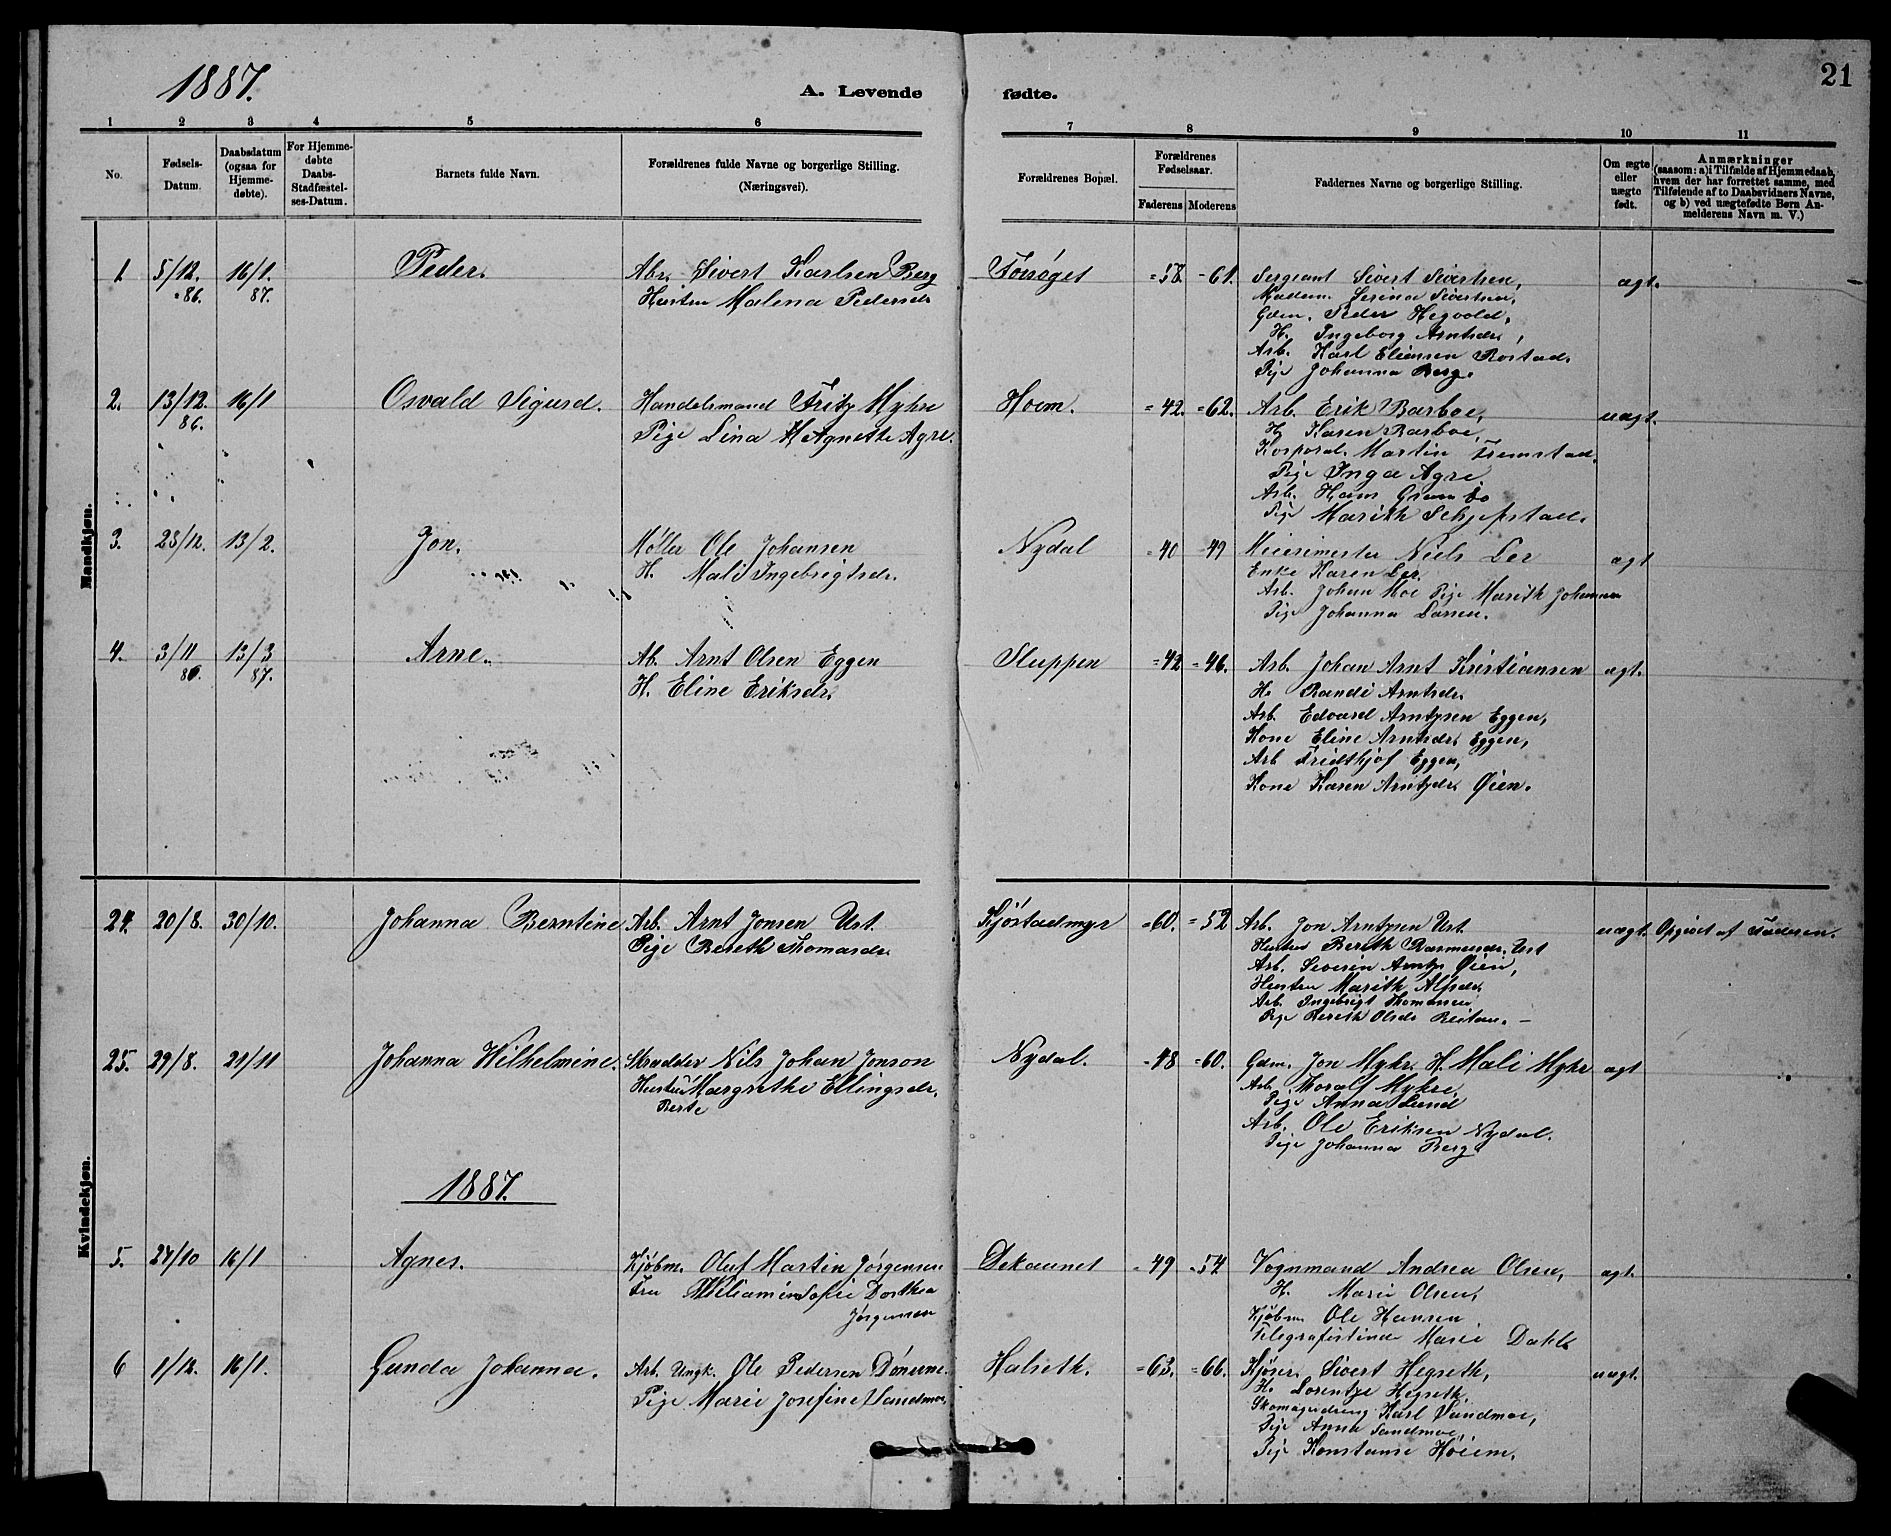 1887.
A. Levende fødte.
21
1 2 3 4 5 6 7 8 9 10 11
No.
Fødsels-Datum.
Daabsdatum (ogsaa for Hjemme-døbte).
For Hjemme-døbte Daabs-Stadfæstel-ses-Datum.
Barnets fulde Navn.
Forældrenes fulde Navne og borgerlige Stilling.
(Næringsvei).
Forældrenes Bopæl.
Forældrenes Fødselsaar.
Faderens Moderens
Faddernes Navne og borgerlige Stilling.
Om ægte eller uægte født.
Anmærkninger
(saasom: a) i Tilfælde af Hjemmedaab,
hvem der har forrettet samme, med
Tilføiende af to Daabsvidners Navne,
og b) ved uægtefødte Børn An-
melderens Navn m. V.)
Mandkjøn.
1 5/12. 86. 16/1. 87. Peder.
Abr. Sivert Karlsen Berg
Hustru Malena Pedersdr
=58 =61.
Sergeant Sivert Sivertsen,
Madam Serina Sivertsen,
Gdm. Peder Hegvold,
H. Ingeborg Arntsdr,
Arb. Karl Eliassen Rostad.
Pige Johanna Berg.
ægt.
2. 13/12. 86. 16/1 Osvald Sigurd.
Handelsmand Fritz Myhre
Pige Lina Agnette Agre.
Hoem. =42. =62.
Arb. Erik Barboe,
H. Karen Barboe,
Korporal Martin Tremstad.
Pige Inga Agre.
Arb. Hans
Pige Marith Schjefstad.
uægt.
3. 28/12. 13/2. Jon.
Møller Ole Johansen
H. Mali Ingebrigtsdr.
Nydal =40 =49
Meierimester Niels Ler
Enke Karen Ler.
Arb. Johan Moe Pige Marith Johansen
Pige Johanna Larsen.
ægt
4. 3/11 86. 13/3 87. Arne.
Ab. Arnt Olsen Eggen
H. Eline Eriksdr.
Sluppen =42 =46.
Arb. Johan Arnt Kristiansen
H. Randi Arntsdr.
Arb. Edvard Arntzen Eggen,
Kone Eline Arntsdr. Eggen,
Arb Fridthjof Eggen,
Kone Karen Arntzdr. Øien.
ægt.
Kvindekjøn.
24. 20/8. 30/10. Johanna Berntine
Arb. Arnt Jonsen Ust.
Pige Bereth Thomasdr
Kjøstadmyr =60. =52
Arb. Jon Arntzen Ust.
Hustru Bereth Rasmusdr. Ust
Arb. Severin Arntz Øien,
Hustru Marith Alfsdr,
Arb. Ingebrigt Thomassen
Pige Bereth Olsdr Reitan. —
uægt. Opgivet af Faderen.
25. 29/8. 21/11 Johanna Wilhelmine.
Skrædder Nils Johan Jonson
Hustru Margrethe Ellingsdr.
Berte
Nydal. =48 =60.
Gdm. Jon Myhr. H. Mali Myhr
Arb. Thoralf Myhre,
Pige Anna Lund
Arb. Ole Eriksen Nydal.
Pige Johanna Berg.
ægt
1887.
5. 24/10 16/1 Agnes.
Kjøbm. Oluf Martin Jørgensen
Fru Sofie Dorthea
Jørgensen
Dekaunet =49 =54
Vognmand Andrea Olsen,
H. Marie Olsen,
Kjøbm Ole Hansen
Telegrafistinde Marie Dahl
ægt.
6 1/12. 16/1. Gunda Johanna.
Arb. Ungk. Ole Pedersen
Pige Marie Josefine Sandmoe.
Halseth. =63. =66.
Kjører Sivert Hegseth,
H. Lorentze Hegseth,
Skomagerdreng Karl Sandmoe,
Pige Anna Sandmoe,
Pige Konstanse Høiem.
uægt.